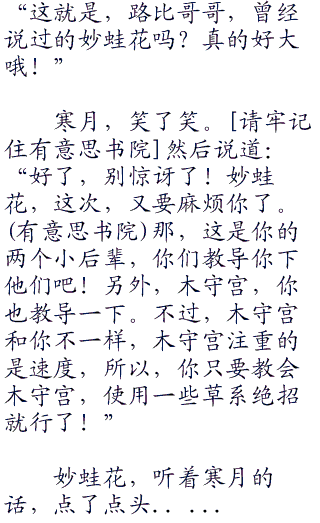 “这就是，路比哥哥，曾经
说过的妙蛙花吗？真的好大
哦！”
寒月，笑了笑。[请牢记
住有意思书院]然后说道：
“好了，别惊讶了！妙蛙
花，这次，又要麻烦你了。
(有意思书院)那，这是你的
两个小后辈，你们教导你下
他们吧！另外，木守宫，你
也教导一下。不过，木守宫
和你不一样，木守宫注重的
是速度，所以，你只要教会
木守宫，使用一些草系绝招
就行了！”
妙蛙花，听着寒月的
话，点了点头.．．...